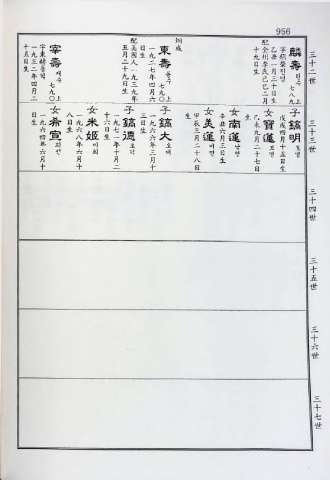 956
三十二世
麟壽 린수 七八九 上
字炳榮 진영
乙丑一月三十日生
配全州李氏己巳二月
十九日生
炳成
東壽 동수 七九〇 上
一九二七年四月六
日生
配美國人一九三九年
五月二十九日生
宰壽 재수 七九〇 上
一九三二年四月二
十五日生
三十三世
子鎬明 호명
戊戌四月十五日生
女寶蓮 보연
乙未九月二十七日
生
女南蓮 남연
辛丑六月三日生
女美蓮 미연
甲辰三月二十八日
生
子鎬大 호대
一九六六年三月十
三日生
子鎬德 호덕
一九七一年十月二
十六日生
女米姬 미희
一九六八年八月
八日生
女希宣 희선
一九六四年六月十
日生
三十四世
三十五世
三十六世
三十七世